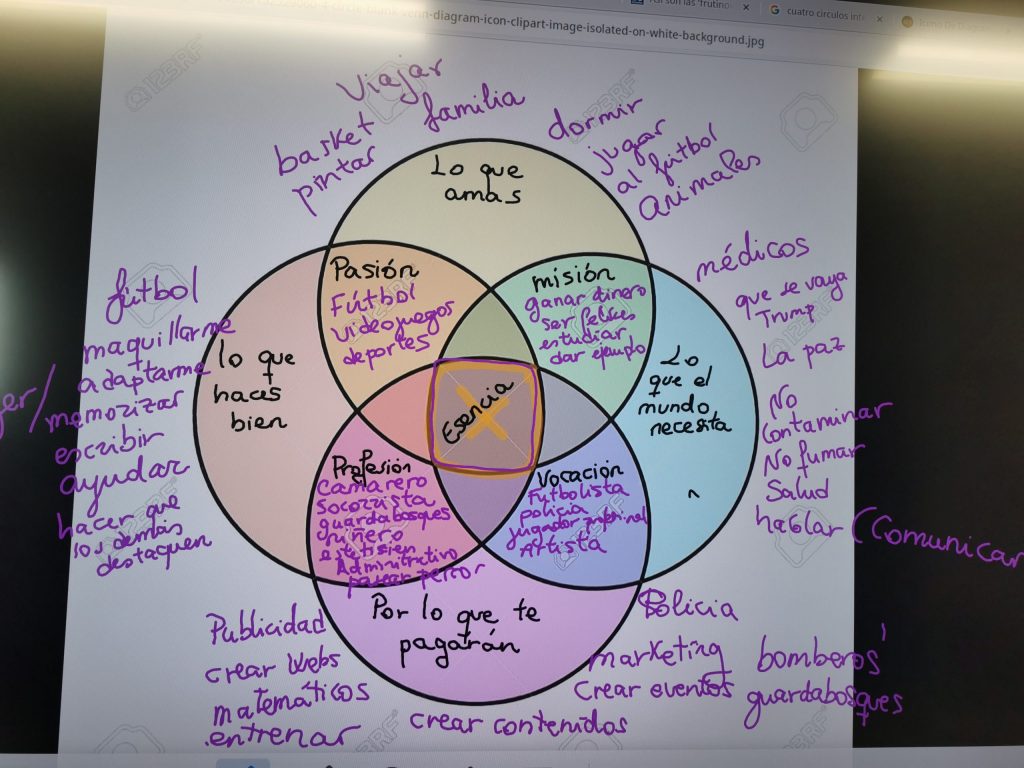 -venn-diagram-icon-clipart-image-isolated-on-white-background.jpg
cuatro circulos int
viajar
familia
basket
pintar
dormir
jugar
al fútbol
animales
Lo que
amas
Pasión
Fútbol
videojuegos
deportes
misión
ganar dinero
ser felices
estudiar
dar ejemplo
fútbol
maquillarme
adaptarme
memorizar
escribir
ayudar
hacer que
los demás
destaquen
lo que
haces
bien
Esencia
Lo
que el
mundo
necesita
médicos
que se vaya
Trump
La paz
No
contaminar
No fumar
Salud
hablar (Comunicar
Profesión
Camarero
Socorrista
guardabosques
Administrativo
Vocación
Futbolista
policia
jugador
Artista
Por lo que te
pagarán
Publicidad
crear webs
matemáticos
entrenar
crear contenidos
Policia
marketing
Crear eventos
bomberos
guardabosques
123RF